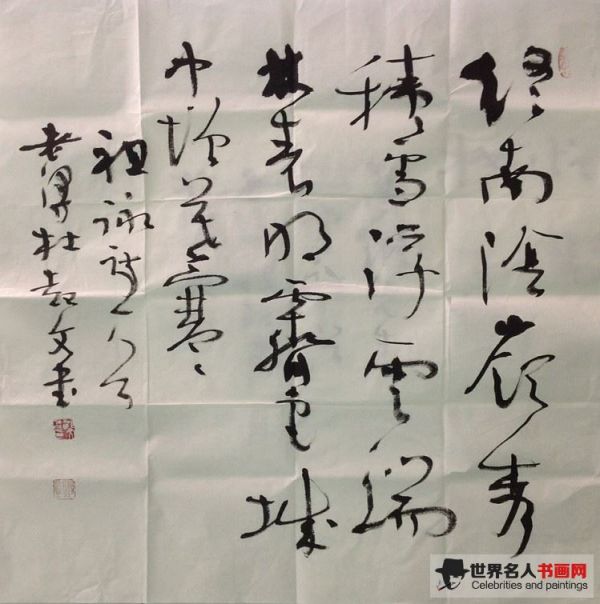 終南陰嶺秀
積雪浮雲端
林表明霽色城
中增暮寒
祖詠詩一首
老杜文書
世界名人书画网
Celebrities and paintings